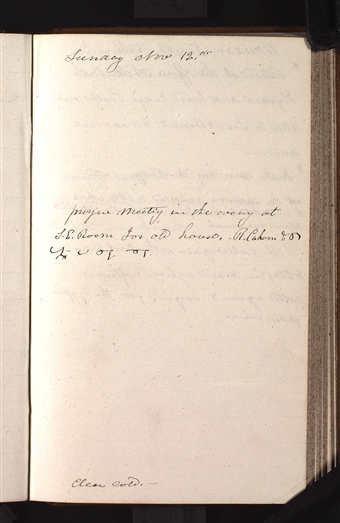 Sunday Nov 12th
prayr Meetig in the eveng at
S. E. Room Jos old house, R. Cahoon & D
Clear cold.—